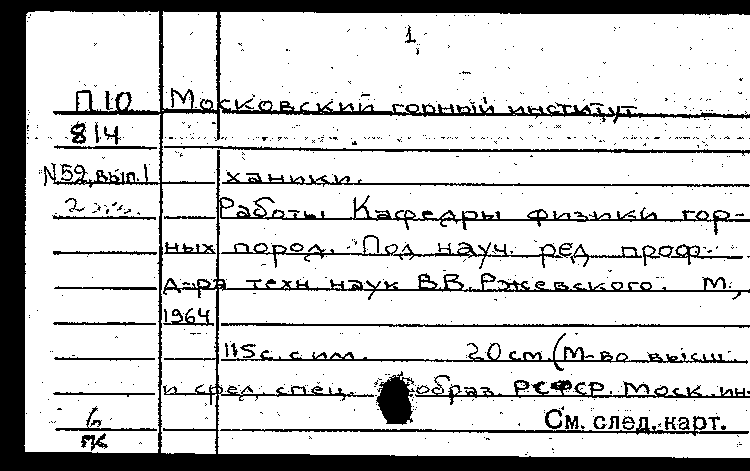 1
П10 Московский горный институт
814
N52, вып.1 ханики.
2 экз. Работы Кафедры физики гор-
ных пород. Под науч. ред проф.
д-ра техн наук В.В. Ржевского. М.,
1964
115 с. с ил. 20 см. (М-во высш.
и сред. спец. образ. РСФСР. Моск. ин-
См. след. карт.
пк